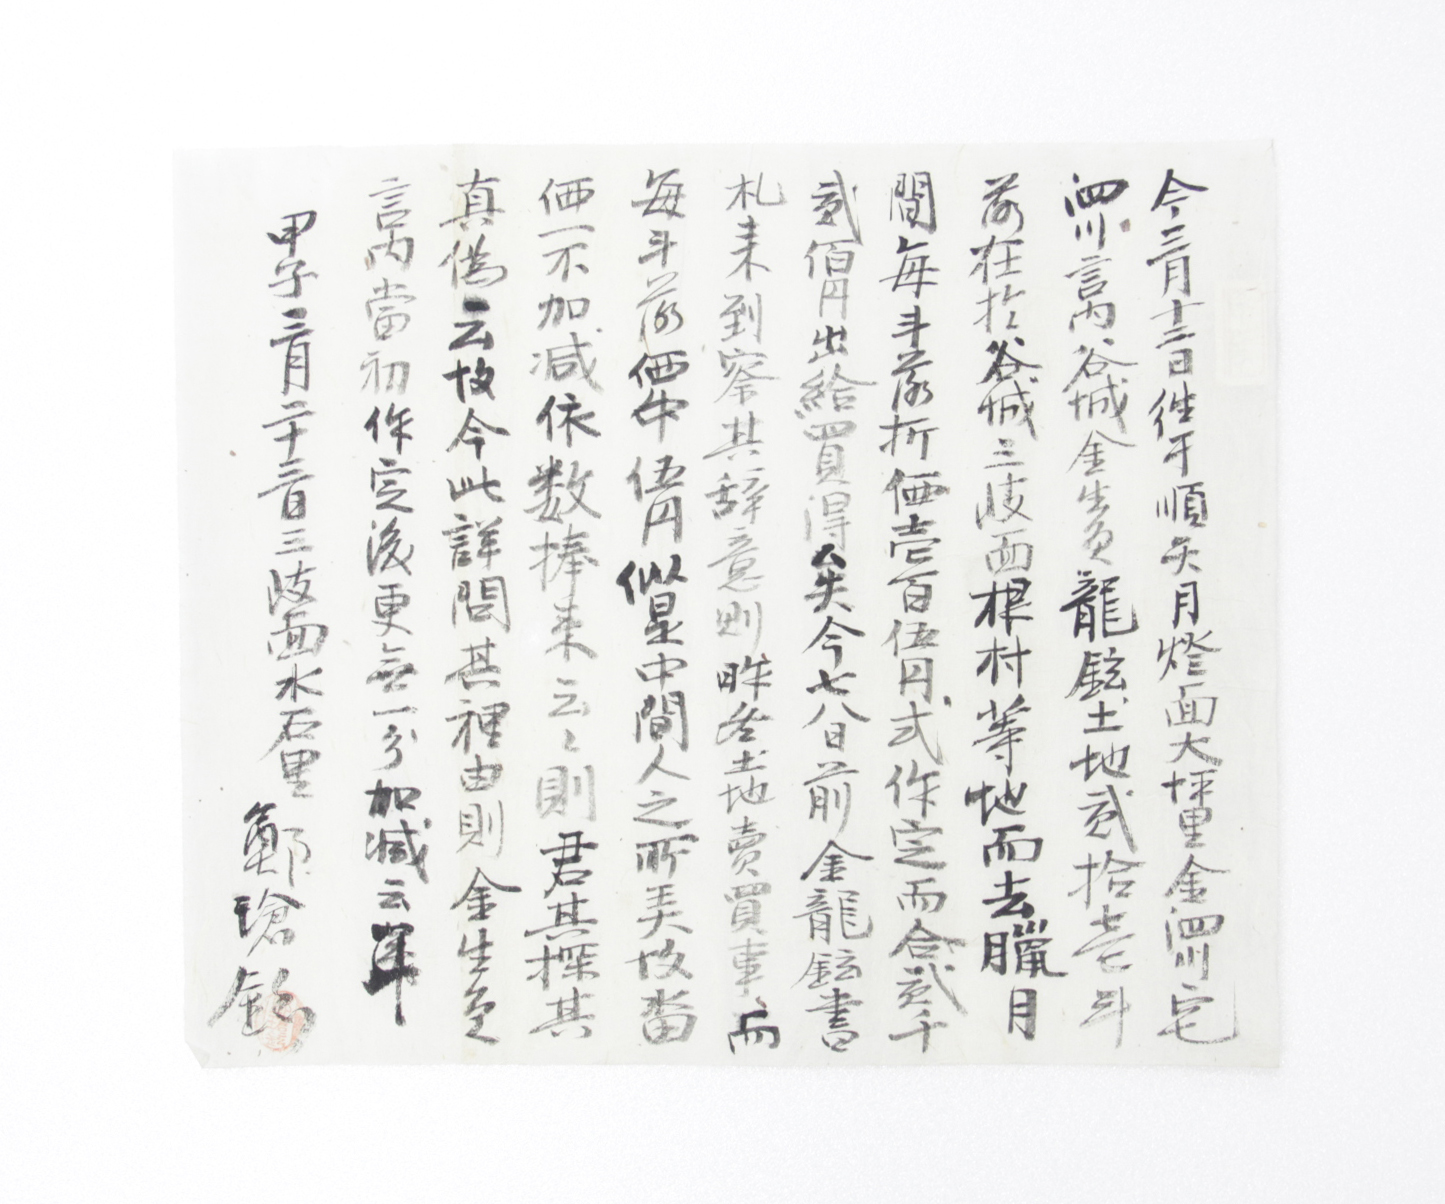 今三月十二日徃于順天月燈面大坪里金泗川宅
泗川言內谷城金生員龍鉉土地貳拾壱斗
落在於谷城三岐面根村等地而去臘月
間每斗落折価壱百伍円式作定而合貳千
貳佰円出給買得矣今七八日前金龍鉉書
札来到察其辞意則昨冬土地賣買事而
每斗落価中伍円似是中間人之所弄故畓
価一不加减依数捧来云〻則君其探其
真偽云故今此詳問其裡由則金生員
言內當初作定後更無一分加减云耳
甲子三月二十三日三岐面水石里
鄭瑲鉉